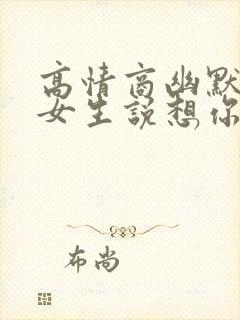 高情商幽默
女生说想你
布尚